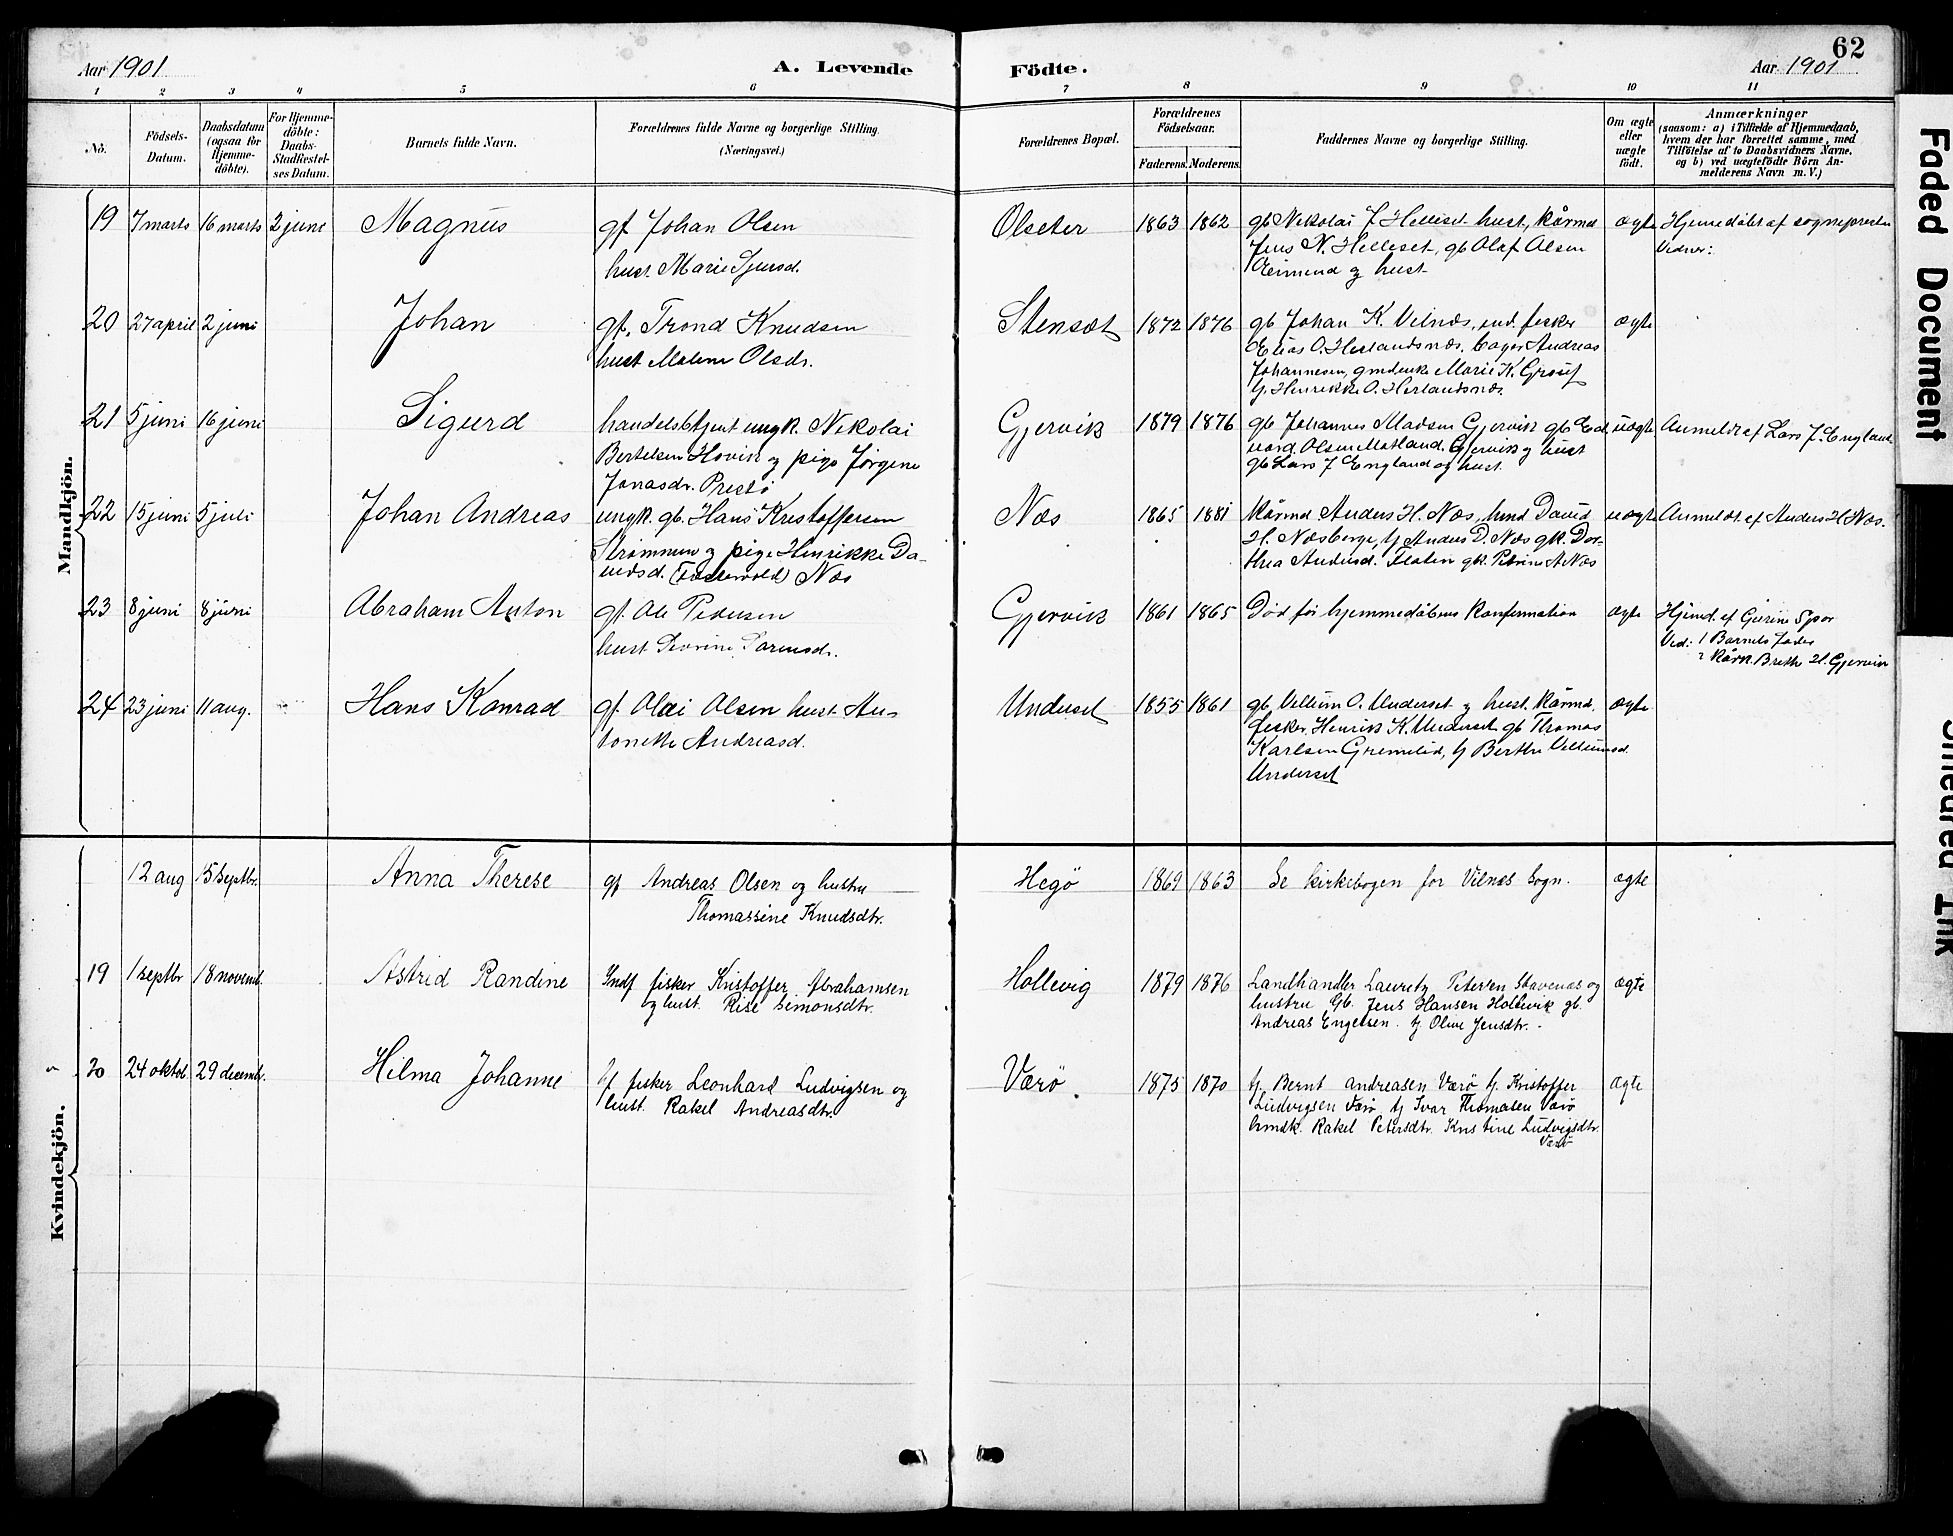 62
Aar 1901 A. Levende Födte. Aar 1901
1 2 3 4 5 6 7 8 9 10 11
No.
Födsels-Datum.
Daabsdatum (ogsaa for Hjemme-döbte).
For Hjemme-döbte: Daabs-Stadfæstel-ses Datum.
Barnets fulde Navn.
Forældrenes fulde Navne og borgerlige Stilling.
(Næringsvei.)
Forældrenes Bopæl.
Forældrenes Födselsaar.
Faderens. Moderens.
Faddernes Navne og borgerlige Stilling.
Om ægte eller uægte födt.
Anmærkninger
(saasom: a) i Tilfælde af Hjemmedaab,
hvem der har forrettet samme, med
Tilföielse af to Daabsvidners Navne.
og b) ved uægtefödte Börn An-
melderens Navn m. V.)
Mandkjön.
19 7 marts 16 marts 2 june Magnus gf Johan Olsen Olseter 1863 1862 gb Nikolai J. Helleset hust, kårmd ægte Hjemedöbt af sognepresten
hust. Marie Sjursd. Jens N. Helleset, gb Olaf Olsen Vidner:
og hust
20 27 april 2 juni Johan gf. Trond Knudsen Stensæt 1872 1876 gb Johan K. Vilnæs, ind. fisker ægte
hust Malene Olsdr. Elias O. Herlandsnæs. Andreas
Johannesen, Marie K.
Henrikke O. Herlandsnæs.
21 5 juni 16 juni Sigurd handelsbetjent ungk. Nikolai Gjervik 1879 1876 gb Johannes Madsen Gjervik gb Ed- uægte Anmeldt af Lars J. England
Bertelsen Hovik og pige Jørgine vard Olsen Gjervik og hust
Jonasdr. Prestö gb Lars J England og hust
22 15 juni 5 juli Johan Andreas ungk. gb. Hans Kristoffersen Næs 1865 1881 kårmd Anders H. Næs, David uægte Anmeldt af Anders H Næs.
Strömmen og pige Henrikke Da- H. Næsberge, Anders D. Næs gk. Dor-
vidsd. Næs thea Andersd. gk. Petrine A Næs
23 8 juni 8 juni Abraham Anton gf. Ole Pedersen Gjervik 1861 1865 Död för hjemmedåbens konfirmation ægte Hjemd. af
hust Ved: 1 Barnets Fader
2 kårk. Brethe H. Gjervik
24 23 juni 11 aug. Hans Konrad gf. Olai Olsen hust. An- Underset 1855 1861 gb Villum O. Underset og hust. kårmd. ægte
tonette Andreasd. fisker Henrik K. Underset gb Thomas
Karlsen Grimelid, Berthe Villumsd.
Underset
Kvindekjön.
12 aug 15 septbr. Anna Therese gf Andreas Olsen og hustru Hegö 1869 1863 Se kirkebogen for Vilnæs Sogn. ægte
Thomassine Knudsdtr.
19 1 septbr 18 novemb. Astrid Randine Indf fisker Kristoffer Abrahamsen Hollevig 1879 1876 Landhandler Lauretz Petersen Stavenæs og ægte
og hust. Rise Simonsdtr. hustru Gb. Jens Hansen Hollevik gb.
Andreas Engelsen. tj Oline Jensdtr.
20 24 oktob 29 decemb. Hilma Johanne if fisker Leonhard Ludvigsen og Værö. 1875 1870 tj. Bernt Andreasen Værö tj. Kristoffer ægte
hust. Rakel Andreasdtr. Ludvigsen Værö tj Ivar Thomasen Værö
Rakel Petersdtr. Kristine Ludvigsdtr.
Værö
Faded Document
Smeared Ink